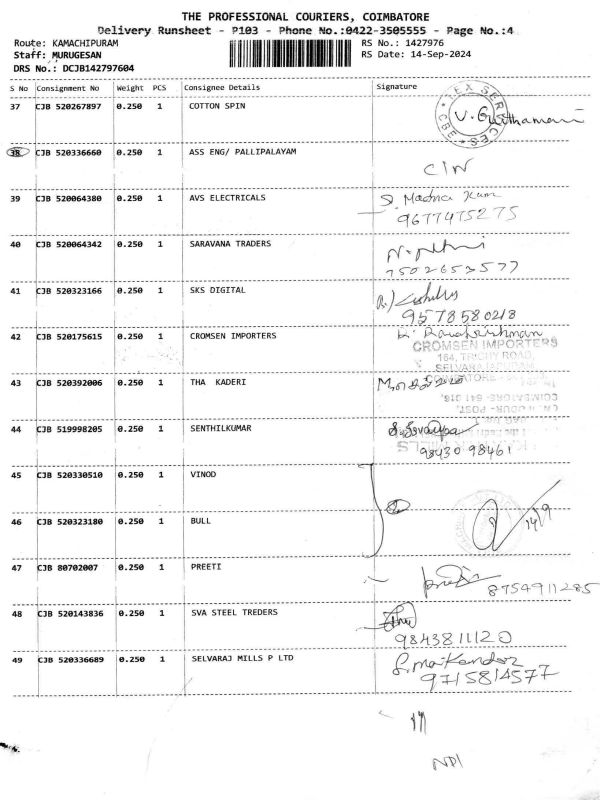 THE PROFESSIONAL COURIERS, COIMBATORE
Delivery Runsheet - P103 - Phone No.:0422-3505555 - Page No.:4
Route: KAMACHIPURAM RS No.: 1427976
Staff: MURUGESAN RS Date: 14-Sep-2024
DRS No.: DCJB142797604
S No Consignment No Weight PCS Consignee Details Signature
37 CJB 520267897 0.250 1 COTTON SPIN
TEX SERVICES CBE
38 CJB 520336660 0.250 1 ASS ENG/ PALLIPALAYAM
C/N
39 CJB 520064380 0.250 1 AVS ELECTRICALS
9677475275
40 CJB 520064342 0.250 1 SARAVANA TRADERS
7502653577
41 CJB 520323166 0.250 1 SKS DIGITAL
9578580218
42 CJB 520175615 0.250 1 CROMSEN IMPORTERS
CROMSEN IMPORTERS
164, TRICHY ROAD,
43 CJB 520392006 0.250 1 THA KADERI
COIMBATORE- 641 016.
44 CJB 519998205 0.250 1 SENTHILKUMAR
98430 98461
45 CJB 520330510 0.250 1 VINOD
46 CJB 520323180 0.250 1 BULL
14/9
47 CJB 80702007 0.250 1 PREETI
8754911285
48 CJB 520143836 0.250 1 SVA STEEL TREDERS
9843811120
49 CJB 520336689 0.250 1 SELVARAJ MILLS P LTD
9715814577